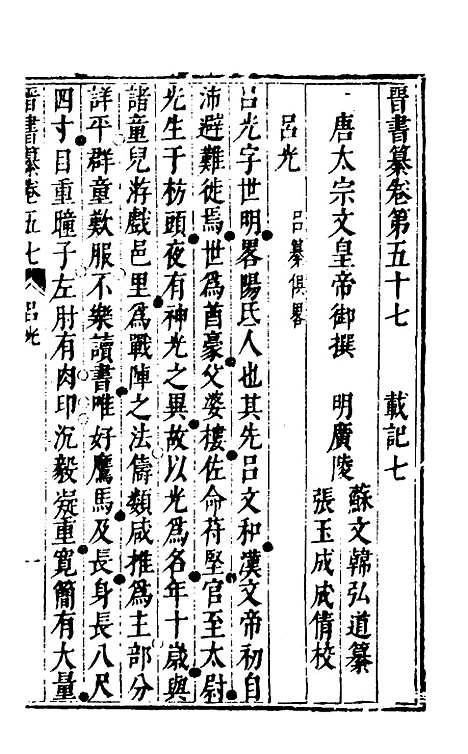 晉書纂卷第五十七　載記七
唐太宗文皇帝御撰　明廣陵
蘇文韓弘道纂
張玉成成倩校
呂光　呂纂俱畧
呂光字世明畧陽氐人也其先呂文和漢文帝初自
沛避難徙焉世爲酋豪父婆樓佐命苻堅官至太尉
光生于枋頭夜有神光之異故以光爲名年十歲與
諸童兒游戲邑里爲戰陣之法儔類咸推爲主部分
詳平群童歎服不樂讀書唯好鷹馬及長身長八尺
四寸目重瞳子左肘有肉印沉毅凝重寬簡有大量
晉書纂卷五七　呂光　一